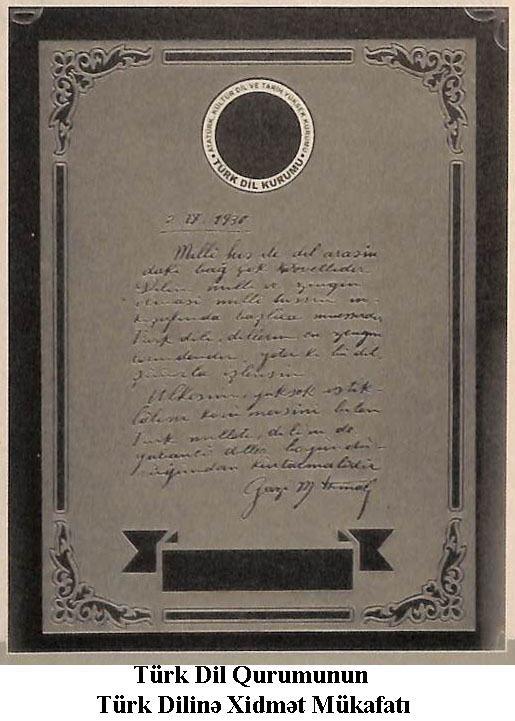 ATATÜRK KÜLTÜR DİL VE TARİH YÜKSEK KURUMU
• TÜRK DİL KURUMU •
2 IX 1930
Milli his ile dil arasın
daki bağ çok kuvvetlidir.
Dilin milli ve zengin
olması milli hissin in-
kişafında başlıca müessirdir.
Türk dili, dillerin en zengin
lerindendir, yeter ki bu dil,
şuurla işlensin.
Ülkesini, yüksek istik-
lâlini korumasını bilen
Türk milleti, dilini de
yabancı diller boyundu-
ruğundan kurtarmalıdır.
Gazi M Kemal
Türk Dil Qurumunun
Türk Dilinə Xidmət Mükafatı